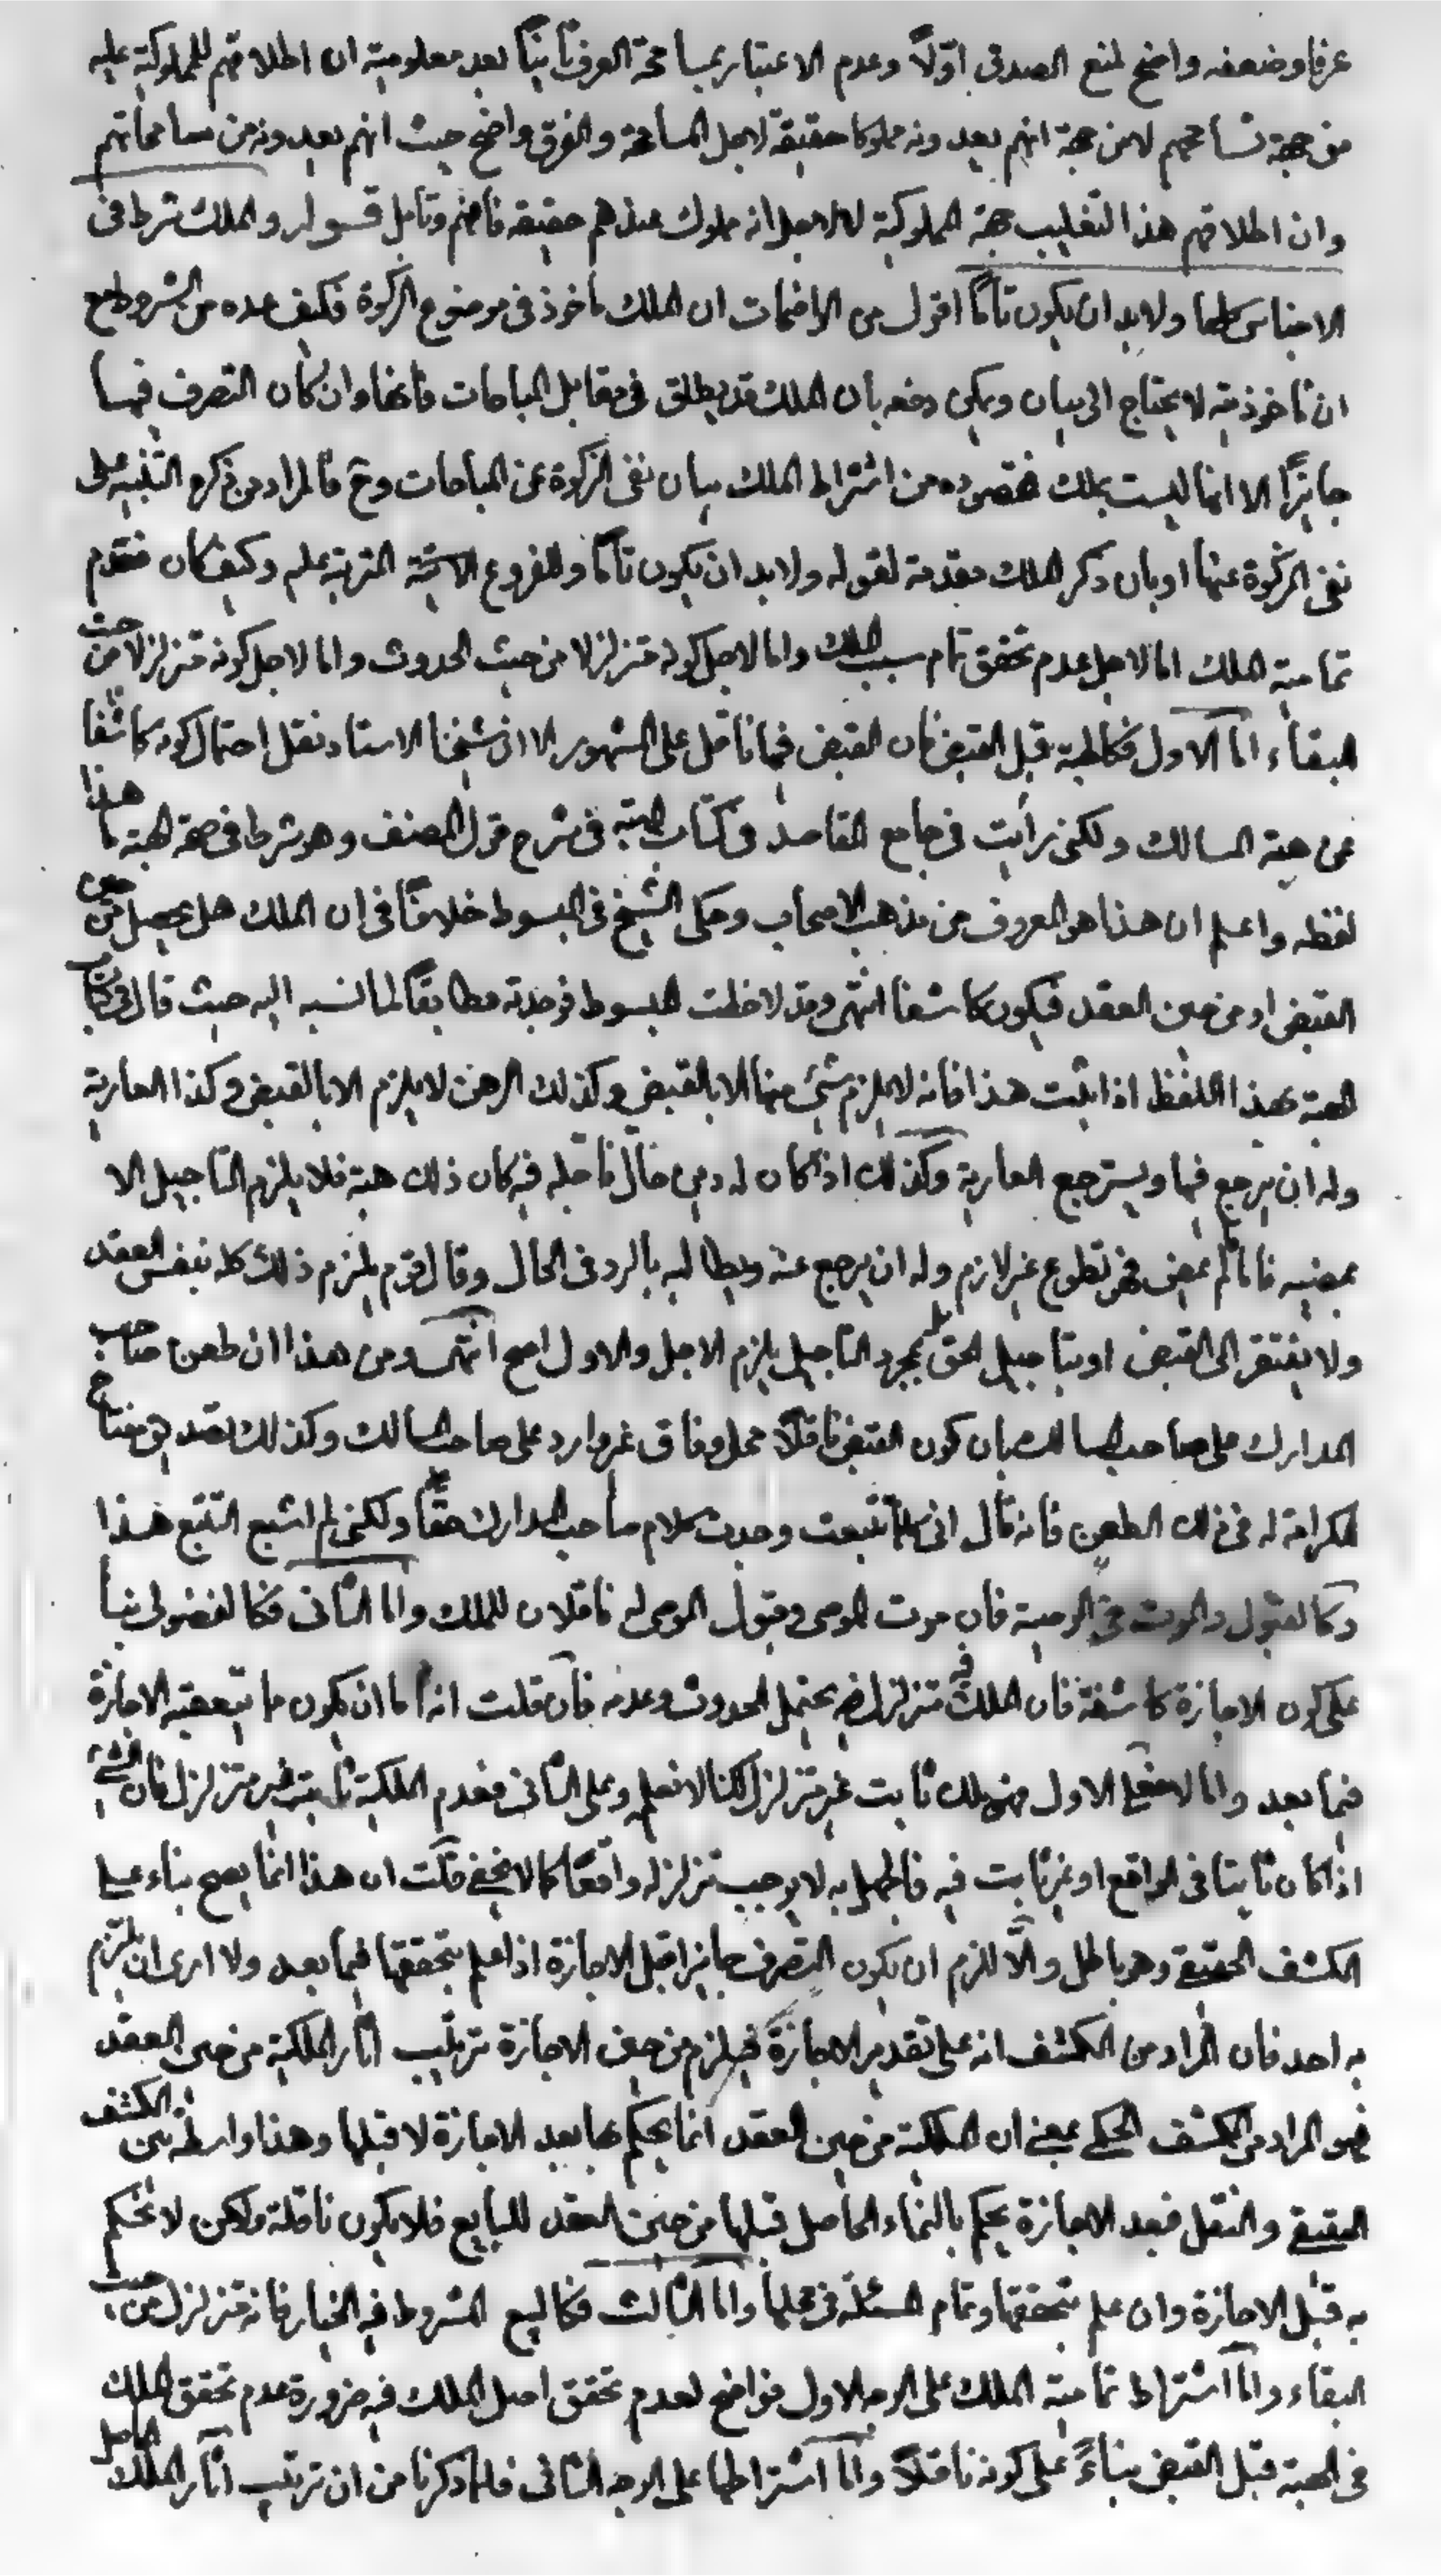 عرفا وضعفه واضح لمنع الصدق اوّلاً وعدم الاعتبار بمسامحة العرف ثانياً بعد معلومية ان اطلاقهم للمملوكية عليه
من جهة تسامحهم لا من جهة انهم يعدونه مملوكا حقيقة لاجل المسامحة والفرق واضح حيث انهم يعدونه من مسامحاتهم
وان اطلاقهم هذا التغليب جهة المملوكية لا لاجل انه مملوك عندهم حقيقة فافهم وتامل قـــوله والملك شرط فى
الاجناس كلها ولابد ان يكون تامّاً اقول من الواضحات ان الملك ماخوذ فى موضوع الزكوة فكيف عده من الشروط مع
ان ماخوذيته لا يحتاج الى بيان ويمكن دفعه بان الملك قد يطلق فى مقابل المباحات فانها وان كان التصرف فيها
جايزاً الا انها ليست بملك فمقصوده من اشتراط الملك بيان نفى الزكوة عن المباحات وح فالمراد من ذكره التنبيه على
نفى الزكوة عنها او بان ذكر الملك مقدمة لقوله ولابد ان يكون تامّا وللفروع الاتية المترتبة عليه وكيف كان فعدم
تمامية الملك اما لاجل عدم تحقق تمام سبب الملك واما لاجل كونه متزلزلا من حيث الحدوث واما لاجل كونه متزلزلا من حيث
البقاء امّا الاول فكالهبة قبل القبض فان القبض فيها ناقل على المشهور الا ان شيخنا الاستاد نقل احتمال كونه كاشفا
عن هبة المسالك ولكنى رايت فى جامع المقاصد فى كتاب الهبة فى شرح قول المصنف وهو شرط فى صحة الهبة ما هذا
لفظه واعلم ان هذا هو المعروف من مذهب الاصحاب وحكى الشيخ فى المبسوط خلافاً فى ان الملك هل يحصل من حين
القبض او من حين العقد فيكون كاشفا انتهى وقد لاحظت المبسوط فوجدته مطابقاً لما نسبه اليه حيث قال فى كتاب
الهبة بهذا اللفظ اذا ثبت هذا فانه لا يلزم شئ منها الا بالقبض وكذلك الرهن لا يلزم الا بالقبض وكذا العارية
وله ان يرجع فيها ويسترجع العارية وكذلك اذا كان له دين حال فاجله فيه كان ذلك هبة فلا يلزم التاجيل الا
بمضيه فاما لم يمض فهو تطوع غير لازم وله ان يرجع عنه ويطالبه بالرد فى الحال وقال قوم يلزم ذلك كله بنفس العقد
ولا يفتقر الى القبض او بتاجيل الحق بل بمجرد التاجيل يلزم الاجل والاول اصح انتهى ومن هذا ان طعن صاحب
المدارك على صاحب المسالك بان كون القبض ناقلاً محل وفاق غير وارد على صاحب المسالك وكذلك تصديق مفتاح
الكرامة له فى ذلك الطعن فانه قال انى كلما تتبعت وجدت كلام صاحب المدارك حقّاً ولكنى لم اشبع التتبع هذا
وكالقبول والموت فى الوصية فان موت الموصى وقبول الموصى له ناقلان للملك وامّا الثانى فكالفضولى بناً
على كون الاجازة كاشفة فان الملك فيه متزلزل يحتمل الحدوث وعدمه فان قلت انه اما ان يكون ما يتعقبه الاجازة
فيما بعد وامّا لا فعلى الاول فهو ملك ثابت غير متزلزل لكنا لا نعلم وعلى الثانى فعدم الملكية ثابتة غير متزلزل فان الشئ
اذا كان ثابتا فى الواقع او غير ثابت فيه فالجهل به لا يوجب تزلزله واقعًا كما لا يخفى قلت ان هذا انما يصح بناء على
الكشف الحقيقى وهو باطل والّا للزم ان يكون التصرف جايزا قبل الاجازة اذا علم بتحققها فيما بعد ولا ارى ان يلتزم
به احد فان المراد من الكشف انه على تقدير الاجازة فيلزم من حين الاجازة ترتيب اثار الملكية من حين العقد
فهو المراد من الكشف الحكمى بمعنى ان الملكية من حين العقد انما يحكم بها بعد الاجازة لا قبلها وهذا واسطة بين الكشف
الحقيقى والنقل فبعد الاجازة يحكم بالنماء الحاصل قبلها من حين العقد للبايع فلا يكون ناقلة ولكن لا نحكم
به قبل الاجازة وان علم بتحققها وتمام المسئلة فى محلها وامّا الثالث فكالبيع المشروط فيه الخيار فانه متزلزل من حيث
البقاء وامّا اشتراط تمامية الملك على الوجه الاول فواضح لعدم تحقق اصل الملك فيه ضرورة عدم تحقق الملك
فى الهبة قبل القبض بناءً على كونه ناقلاً وامّا اشتراطها على الوجه الثانى فلما ذكرنا من ان ترتيب آثار الملك الحاصل